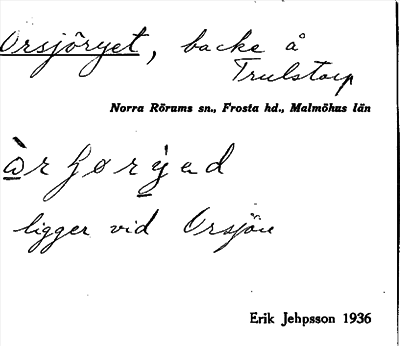 Orsjöryet, backe å
Trulstorp
Norra Rörums sn., Frosta hd., Malmöhus län
ligger vid Orsjön
Erik Jehpsson 1936